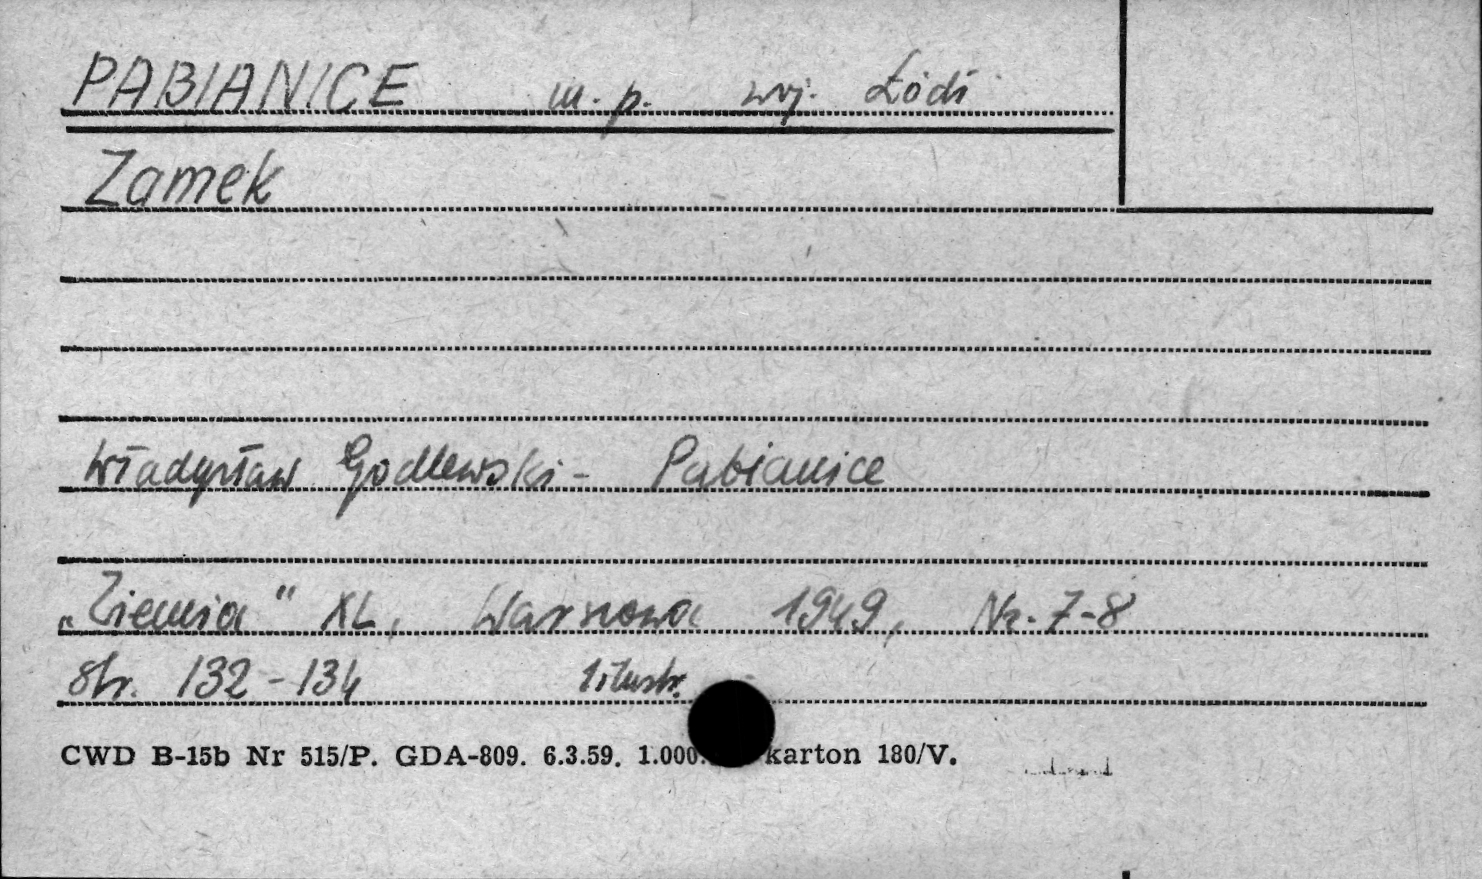 PABIANICE m. p. woj. Łódź
Zamek
Władysław Godlewski - Pabianice
„Ziemia" XL, Warszawa 1949, Nr. 7-8
str. 132-134 1 ilustr.
CWD B-15b Nr 515/P. GDA-809. 6.3.59. 1.000. karton 180/V.